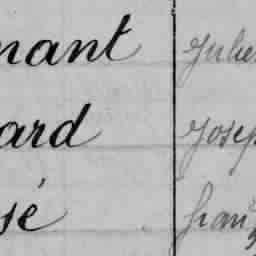 nant Julie
ard Josep
sé Fran